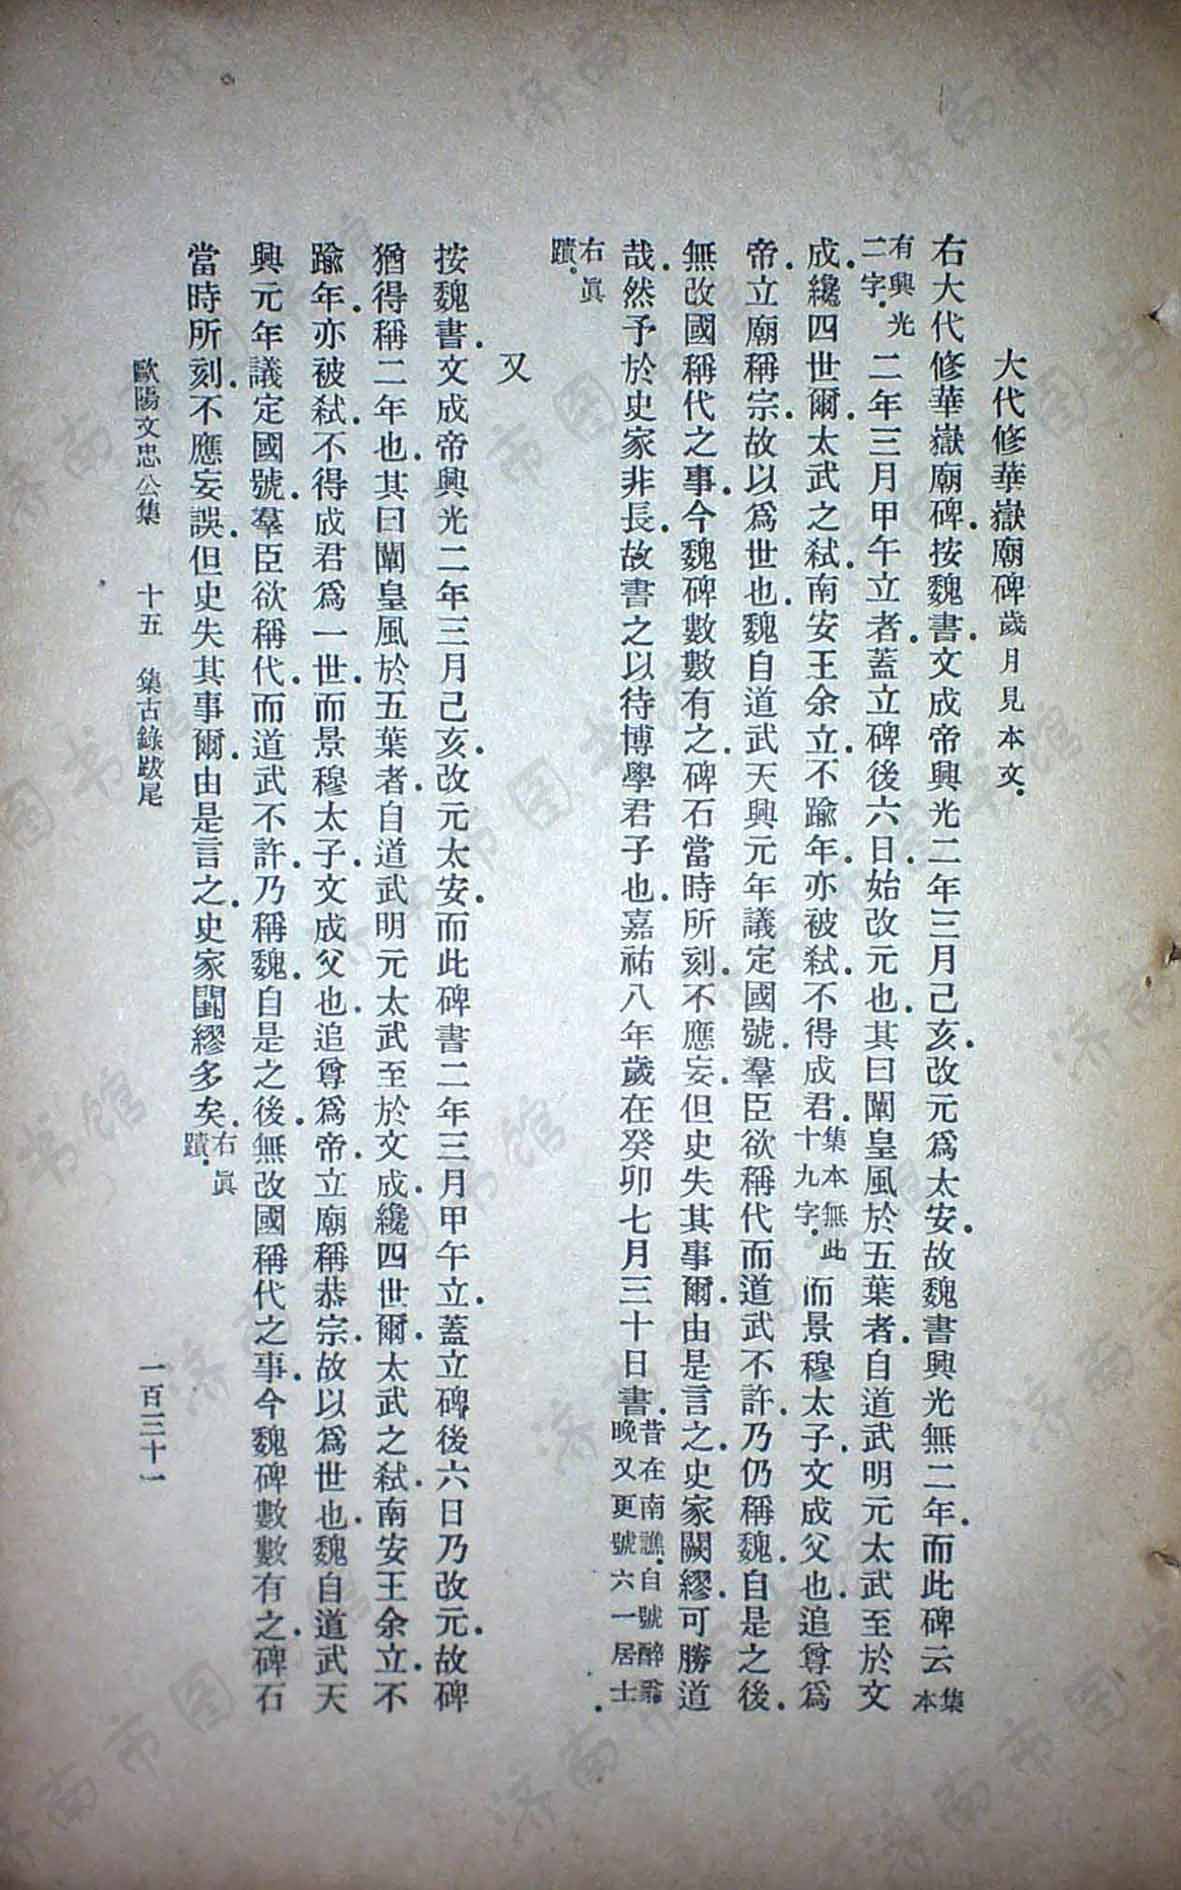 大代修華嶽廟碑歲月見本文.
右大代修華嶽廟碑.按魏書.文成帝興光二年三月己亥.改元爲太安.故魏書興光無二年.而此碑云集本
有興光二字.二年三月甲午立者.蓋立碑後六日.始改元也.其曰闡皇風於五葉者.自道武明元太武至於文
成.纔四世爾.太武之弒.南安王余立.不踰年.亦被弒.不得成君.集本無此十九字.而景穆太子.文成父也.追尊爲
帝.立廟稱宗.故以爲世也.魏自道武天興元年議定國號.羣臣欲稱代而道武不許.乃仍稱魏.自是之後.
無改國稱代之事.今魏碑數數有之.碑石當時所刻.不應妄.但史失其事爾.由是言之.史家闕繆.可勝道
哉.然予於史家非長.故書之以待博學君子也.嘉祐八年歲在癸卯七月三十日書.昔在南譙.自號醉翁晚又更號六一居士.
右眞蹟.
又
按魏書.文成帝興光二年三月己亥.改元太安.而此碑書二年三月甲午立.蓋立碑後六日乃改元.故碑
猶得稱二年也.其曰闡皇風於五葉者.自道武明元太武至於文成.纔四世爾.太武之弒.南安王余立.不
踰年.亦被弒.不得成君爲一世.而景穆太子.文成父也.追尊爲帝.立廟稱恭宗.故以爲世也.魏自道武天
興元年議定國號.羣臣欲稱代.而道武不許.乃稱魏.自是之後.無改國稱代之事.今魏碑數數有之.碑石
當時所刻.不應妄誤.但史失其事爾.由是言之.史家闕繆多矣.右眞蹟.
歐陽文忠公集 十五 集古錄跋尾 一百三十一
济南市图书馆